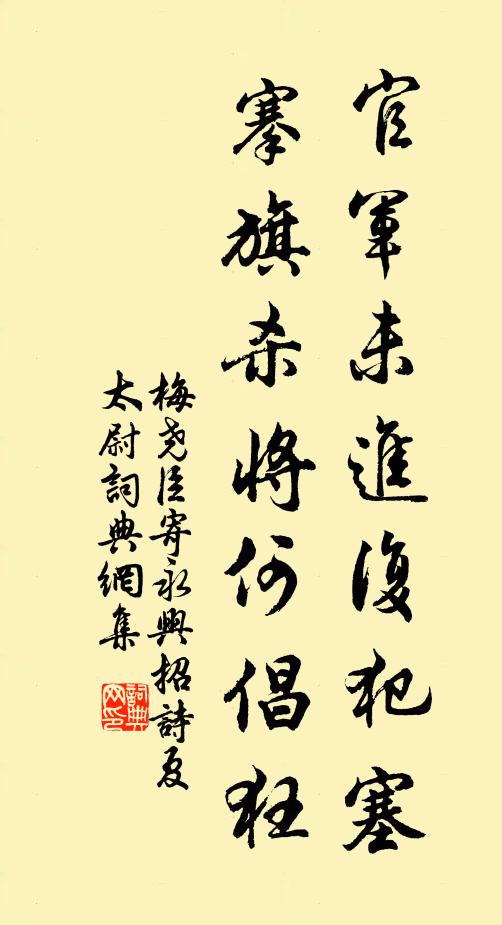 官軍未進復犯塞
搴旗杀將何倡狂
梅尧臣寄永興招詩夏
太尉詞典網集
詞典网印